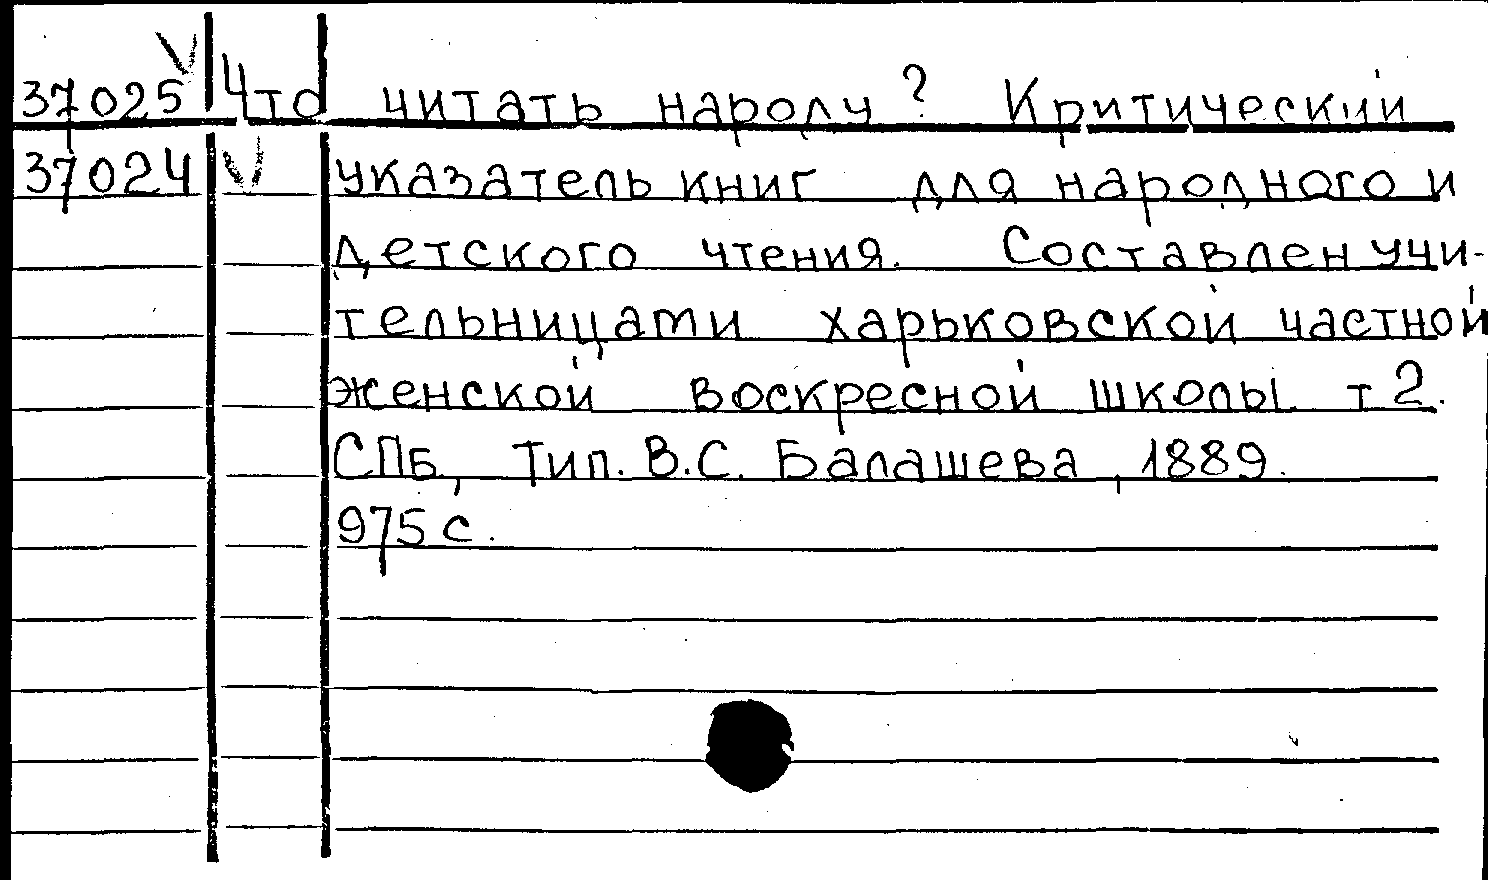 37025 V Что читать народу? Критический
37024 V указатель книг для народного и
детского чтения. Составлен учи-
тельницами харьковской частной
женской воскресной школы т 2.
СПБ, Тип. В.С. Балашева, 1889.
975 с.